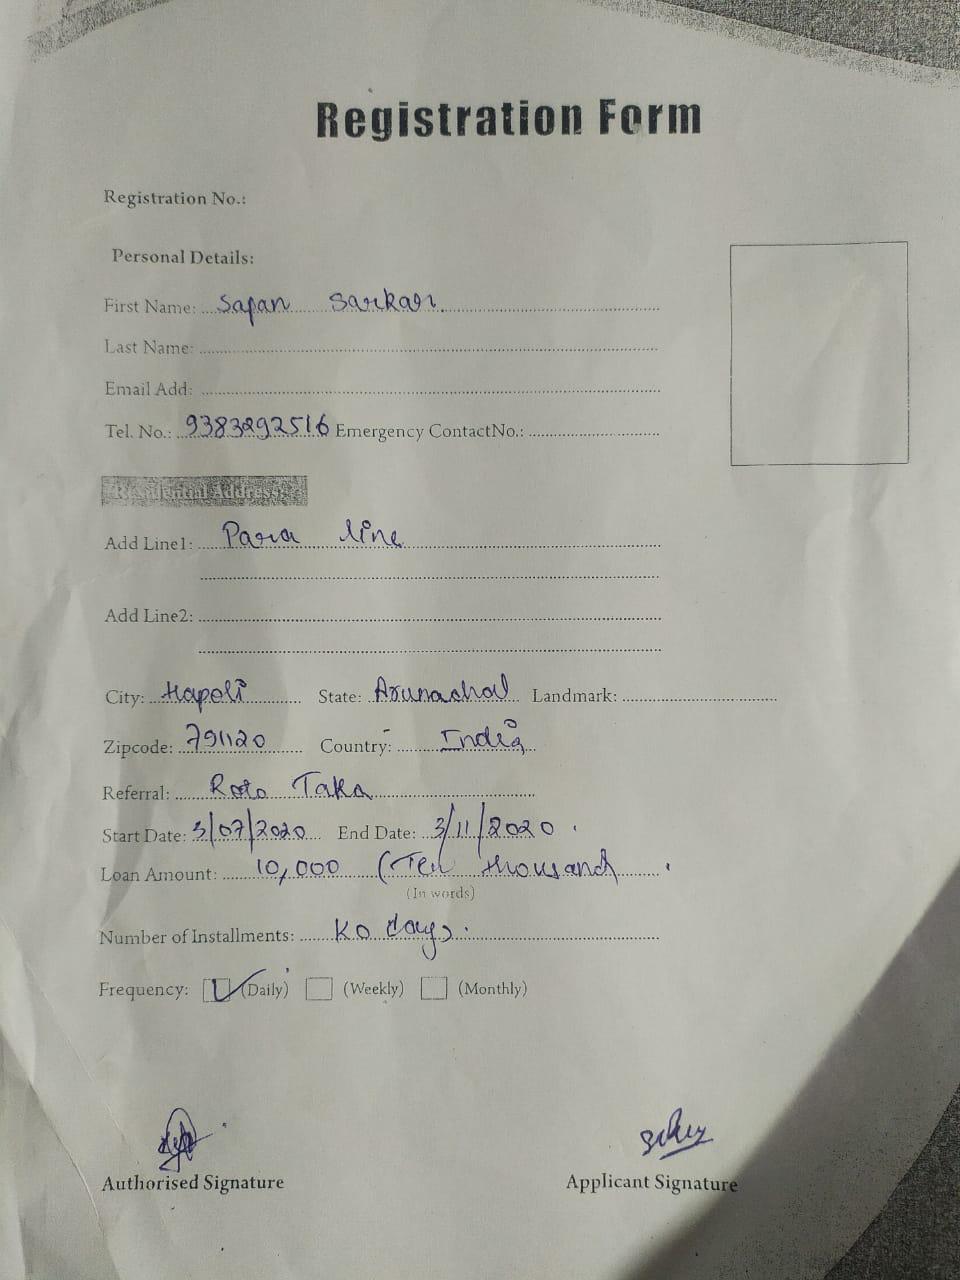 Registration Form
Registration No.:
Personal Details:
First Name: Sapan Sarkar
Last Name:
Email Add:
Tel. No.: 9383292516 Emergency ContactNo.:
Residential Address:
Add Line1: Para line
Add Line2:
City: Hapoli State: Arunachal Landmark:
Zipcode: 791120 Country: India
Referral: Roto Taka
Start Date: 3/07/2020 End Date: 3/11/2020
Loan Amount: 10,000 (Ten thousand
(In words)
Number of Installments: days.
Frequency: (Daily) (Weekly) (Monthly)
Authorised Signature Applicant Signature